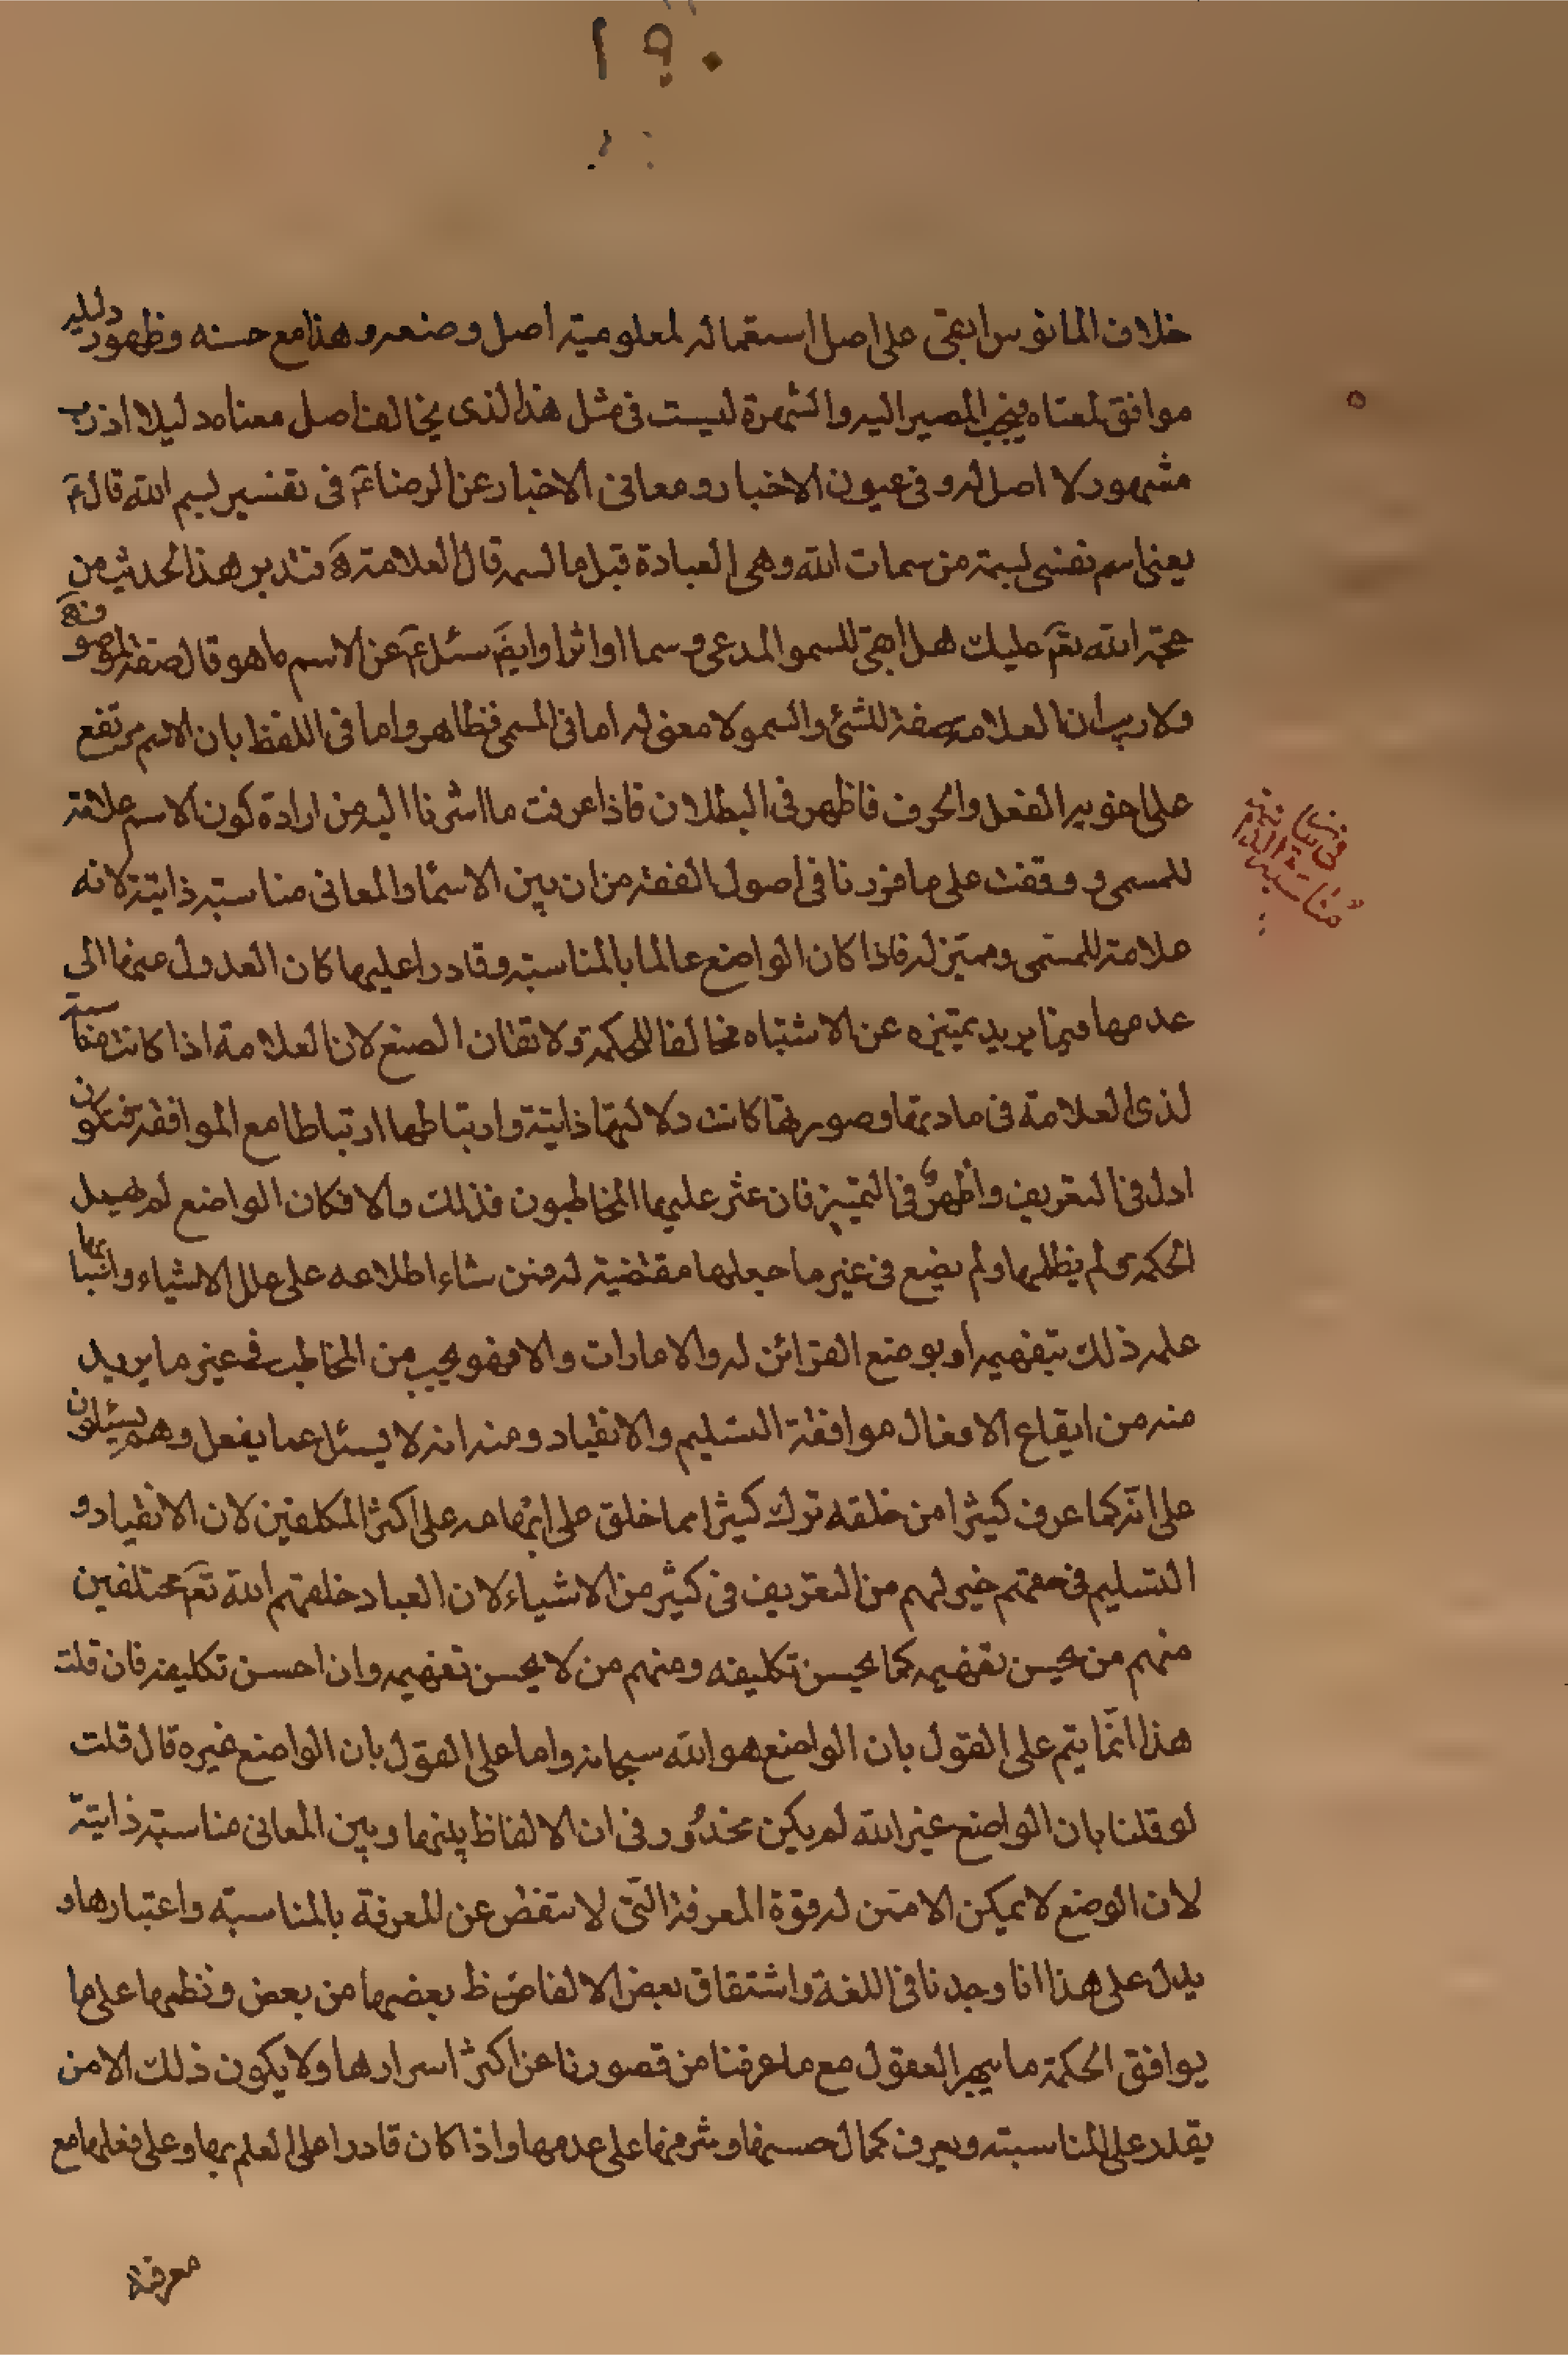 ١٩٠
خلاف المانوس ابقى على اصل استعماله لمعلومية اصل وضعه وهذا مع حسنه وظهور دليله
موافق لمعناه فيجب المصير اليه والشهرة ليست فى مثل هذا الذى يخالف اصل معناه دليلا اذ رب
مشهور لا اصل له وفى عيون الاخبار ومعانى الاخبار عن الرضا عم فى تفسير بسم الله قال عم
يعنى اسم نفسى بسمة من سمات الله وهى العبادة قيل ما السمة قال العلامة فتدبر هذا الحديث من
حجة الله تعم عليك هل ابقى للسمو المدعى رسما او اثرا وايضم سئل عم عن الاسم ما هو قال صفة لموصوف
ولا ريب ان العلامة صفة للشئ والسمو لا معنى له اما فى المسمى فظاهر واما فى اللفظ بان الاسم مرتفع
على اخويه الفعل والحرف فاظهر فى البطلان فاذا عرفت ما اشرنا اليه من ارادة كون الاسم علامة
للمسمى ووقفت على ما قررنا فى اصول الفقه من ان بين الاسماء والمعانى مناسبة ذاتية لانه
علامة للمسمى ومميز له فاذا كان الواضع عالما بالمناسبة وقادرا عليها كان العدول عنها الى
عدمها فيما يريد تمييزه عن الاشتباه مخالفا للحكمة ولاتقان الصنع لان العلامة اذا كانت مناسبة
لذى العلامة فى مادتها وصورتها كانت دلالتها ذاتية وارتباطها ارتباطا مع الموافقة فتكون
ادل فى التعريف واظهر فى التمييز فان عثر عليها المخاطبون فذلك والا فكان الواضع لم يهمل
الحكمة ولم يظلمها ولم يضع فى غير ما جعلها مقتضية له فمن شاء اطلاعه على علل الاشياء واسبابها
علمه ذلك بتفهيمه او بوضع القرائن له والامارات والا فهو يحب من المخاطب فى غير ما يريد
منه من ايقاع الافعال موافقة التسليم والانقياد ومنه انه لا يسئل عما يفعل وهم يسئلون
على انه كما عرف كثيرا من خلقه ترك كثيرا مما خلق على ابهامه على اكثر المكلفين لان الانقياد و
التسليم فى حقهم خير لهم من التعريف فى كثير من الاشياء لان العباد خلقهم الله تعم مختلفين
منهم من يحسن تفهيمه كما يحسن تكليفه ومنهم من لا يحسن تفهيمه وان احسن تكليفه فان قلت
هذا انما يتم على القول بان الواضع هو الله سبحانه واما على القول بان الواضع غيره قال قلت
لو قلنا بان الواضع غير الله لم يكن محذور فى ان الالفاظ بينها وبين المعانى مناسبة ذاتية
لان الوضع لا يمكن الا ممن له قوة المعرفة التى لا تنقص عن المعرفة بالمناسبة واعتبارها و
يدل على هذا انا وجدنا فى اللغة واشتقاق بعض الالفاظ بعضها من بعض ونظمها على ما
يوافق الحكمة ما يبهر العقول مع ما عرفنا من قصورنا عن اكثر اسرارها ولا يكون ذلك الا من
يقدر على المناسبة ويعرف كمال حسنها وشرفها على عدمها واذا كان قادرا على العلم بها وعلى فعلها مع
معرفة
فى بيان
مناسبة